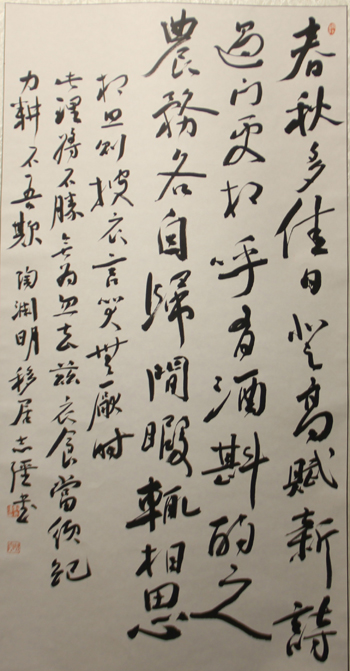 春秋多佳日登高賦新詩
過门更相呼有酒斟酌之
農務各自歸閒暇輒相思
相思則披衣言笑無厭時
此理将不勝無为忽去兹衣食當須紀
力耕不吾欺 陶渊明移居志強书